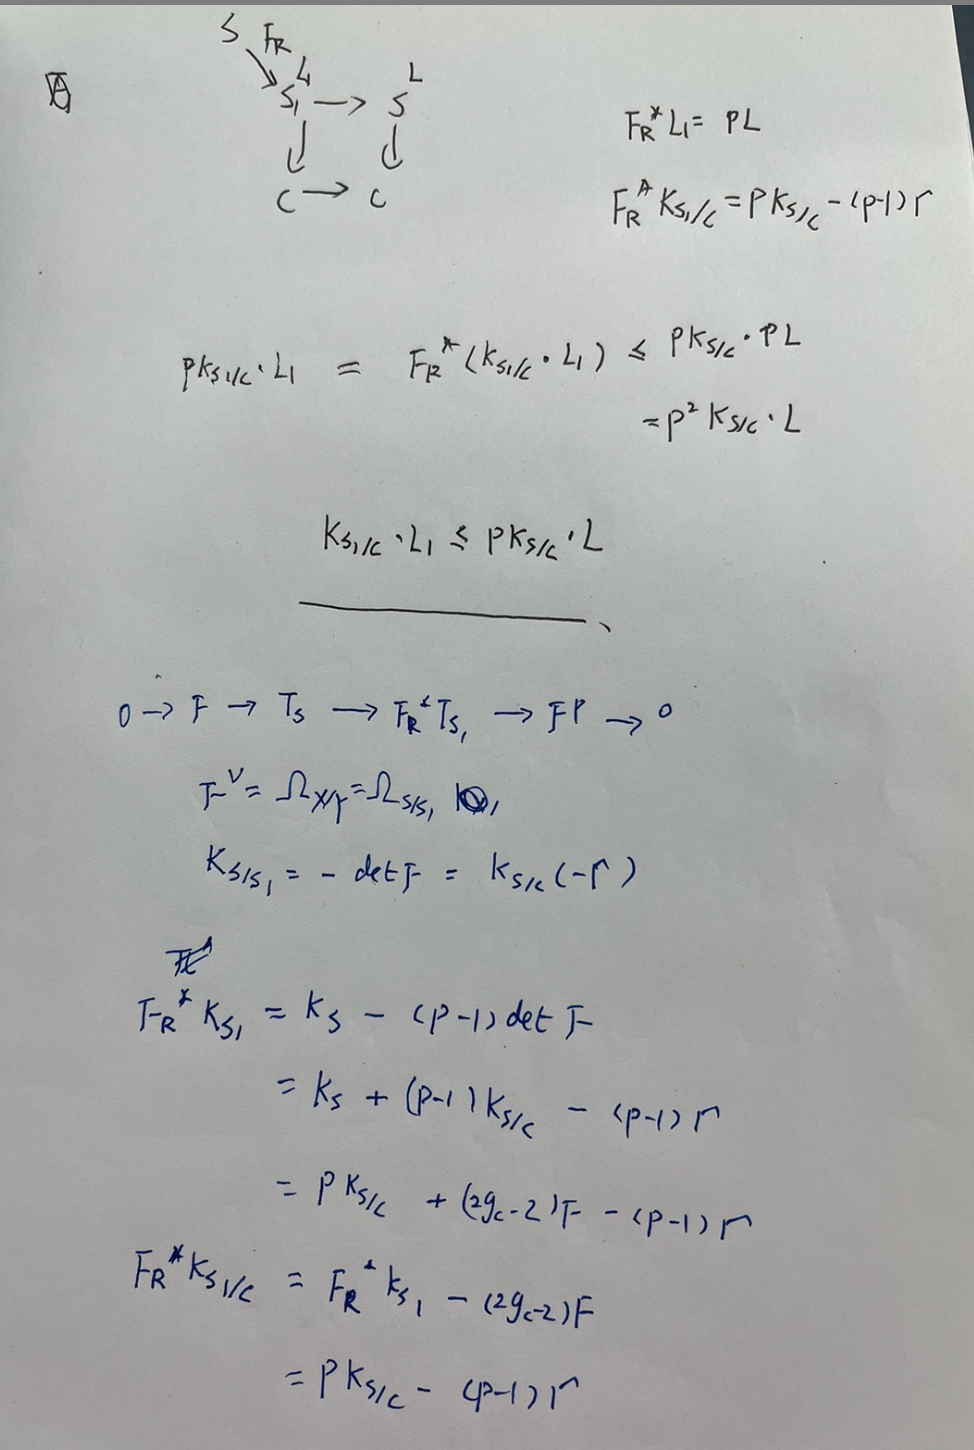 S F_R
L_1 L
S_1 → S
↓ ↓
C → C
F_R^* L_1 = PL
F_R^* K_{S_1/C} = P K_{S/C} - (p-1) Γ
p K_{S_1/C} · L_1 = F_R^* (K_{S_1/C} · L_1) ≤ P K_{S/C} · P L
= p² K_{S/C} · L
K_{S_1/C} · L_1 ≤ p K_{S/C} · L
0 → F → T_S → F_R^* T_{S_1} → F^P → 0
F^∨ = Ω_{X/Y} = Ω_{S/S_1}
K_{S/S_1} = - det F = K_{S/C} (-Γ)
F_R^* K_{S_1} = K_S - (p-1) det F
= K_S + (p-1) K_{S/C} - (p-1) Γ
= P K_{S/C} + (2g_C - 2) F - (p-1) Γ
F_R^* K_{S_1/C} = F_R^* K_{S_1} - (2g_C - 2) F
= P K_{S/C} - (p-1) Γ